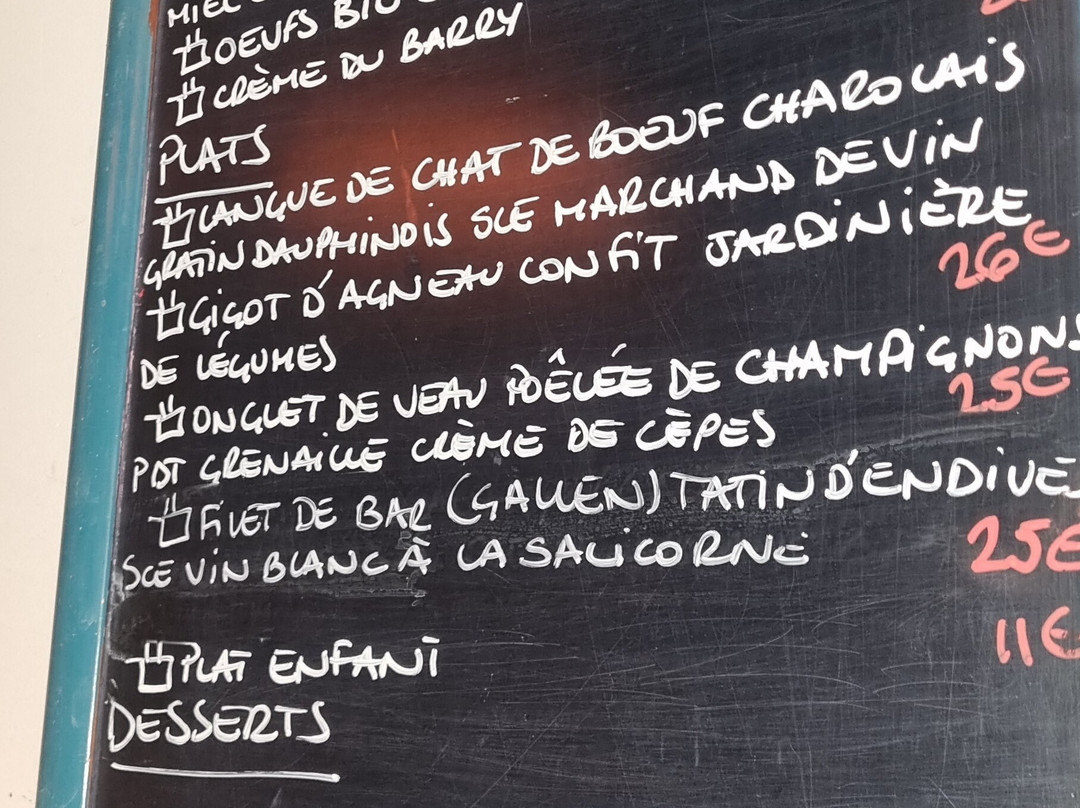 MIEL
OEUFS BIO
CRÈME DU BARRY
PLATS
LANGUE DE CHAT DE BOEUF CHAROLAIS
GRATIN DAUPHINOIS SCE MARCHAND DE VIN
GIGOT D'AGNEAU CONFIT JARDINIÈRE
26€
DE LÉGUMES
ONGLET DE VEAU POÊLÉE DE CHAMPIGNONS
25€
PDT GRENAILLE CRÈME DE CÈPES
FILET DE BAR (GALLEN) TATIN D'ENDIVES
SCE VIN BLANC À LA SALICORNE
25€
PLAT ENFANT
11€
DESSERTS